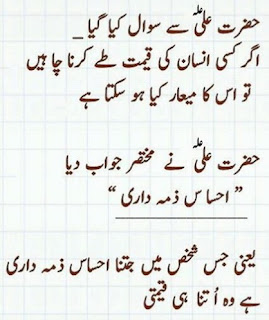 حضرت علیؑ سے سوال کیا گیا _
اگر کسی انسان کی قیمت طے کرنا چاہیں
تو اس کا میعار کیا ہو سکتا ہے
حضرت علیؑ نے مختصر جواب دیا
” احساس ذمہ داری “
یعنی جس شخص میں جتنا احساس ذمہ داری
ہے وہ اُتنا ہی قیمتی